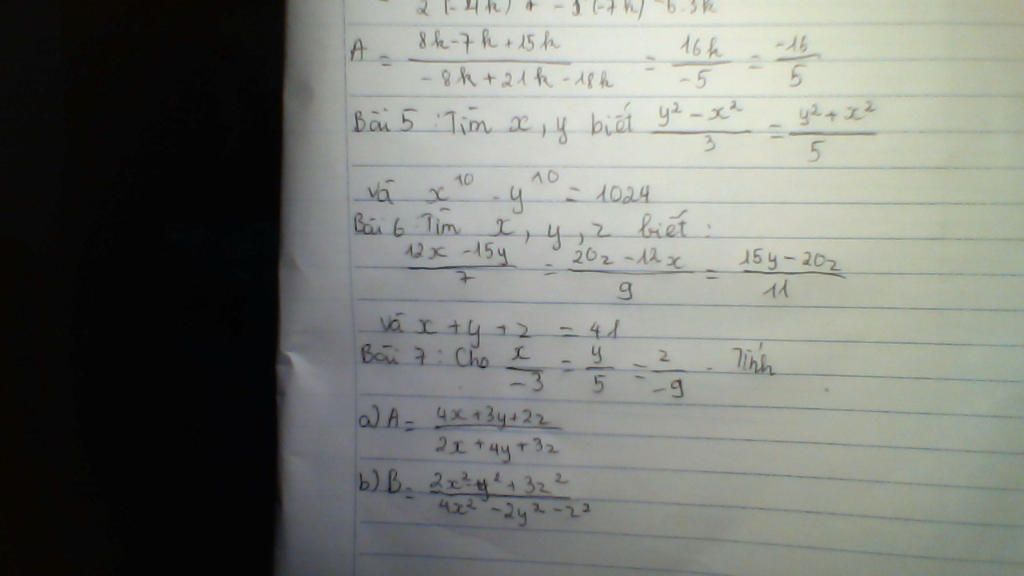 2(-4k) + -3(-7k) -6.3k
A = \frac{8k-7k+15k}{-8k+21k-18k} = \frac{16k}{-5} = \frac{-16}{5}
Bài 5 : Tìm x, y biết \frac{y² - x²}{3} = \frac{y² + x²}{5}
và x^{10} . y^{10} = 1024
Bài 6 Tìm x, y, z biết :
\frac{12x - 15y}{7} = \frac{20z - 12x}{9} = \frac{15y - 20z}{11}
và x + y + z = 41
Bài 7 : Cho \frac{x}{-3} = \frac{y}{5} = \frac{z}{-9} . Tính
a) A = \frac{4x+3y+2z}{2x+4y+3z}
b) B = \frac{2x²-y²+3z²}{4x²-2y²-z²}